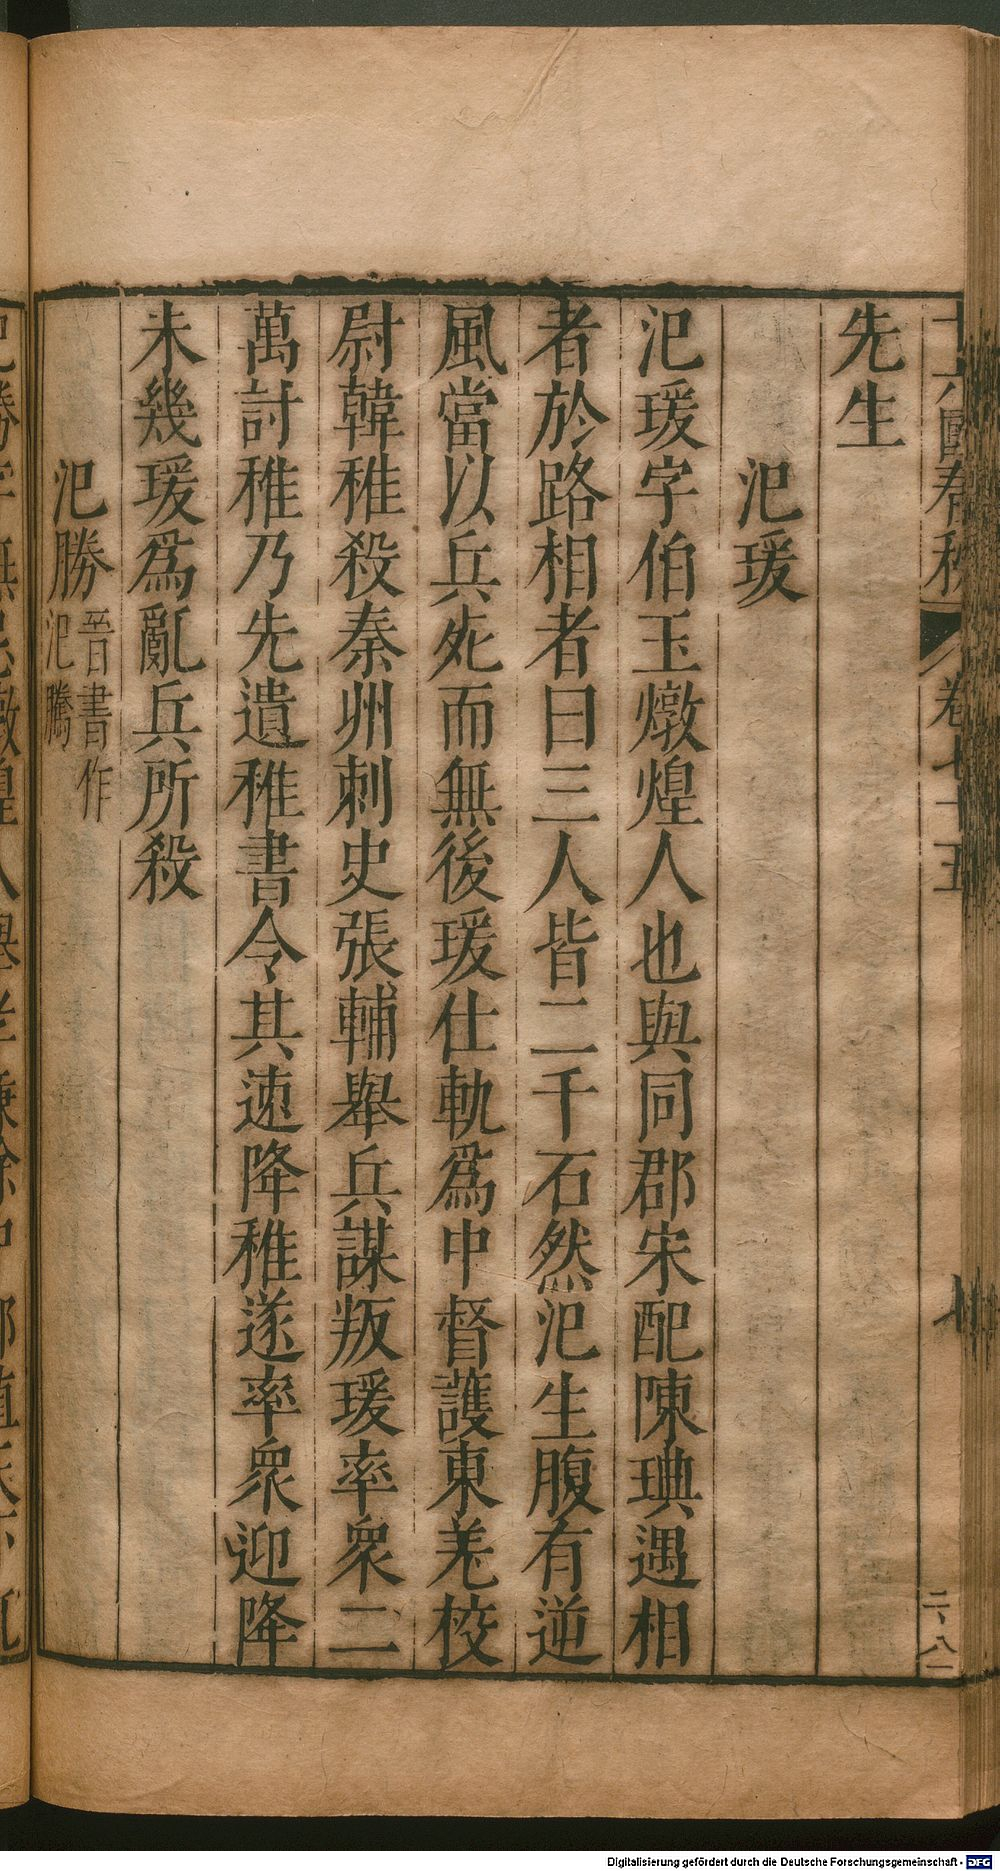 十六國春秋 卷七十五 七
先生
氾瑗
氾瑗字伯玉燉煌人也與同郡宋配陳琠遇相
者於路相者曰三人皆二千石然氾生腹有逆
風當以兵死而無後瑗仕軌爲中督護東羌校
尉韓稚殺秦州刺史張輔舉兵謀叛瑗率衆二
萬討稚乃先遺稚書令其速降稚遂率衆迎降
未幾瑗爲亂兵所殺
氾勝 晉書作氾騰
Digitalisierung gefördert durch die Deutsche Forschungsgemeinschaft - DFG